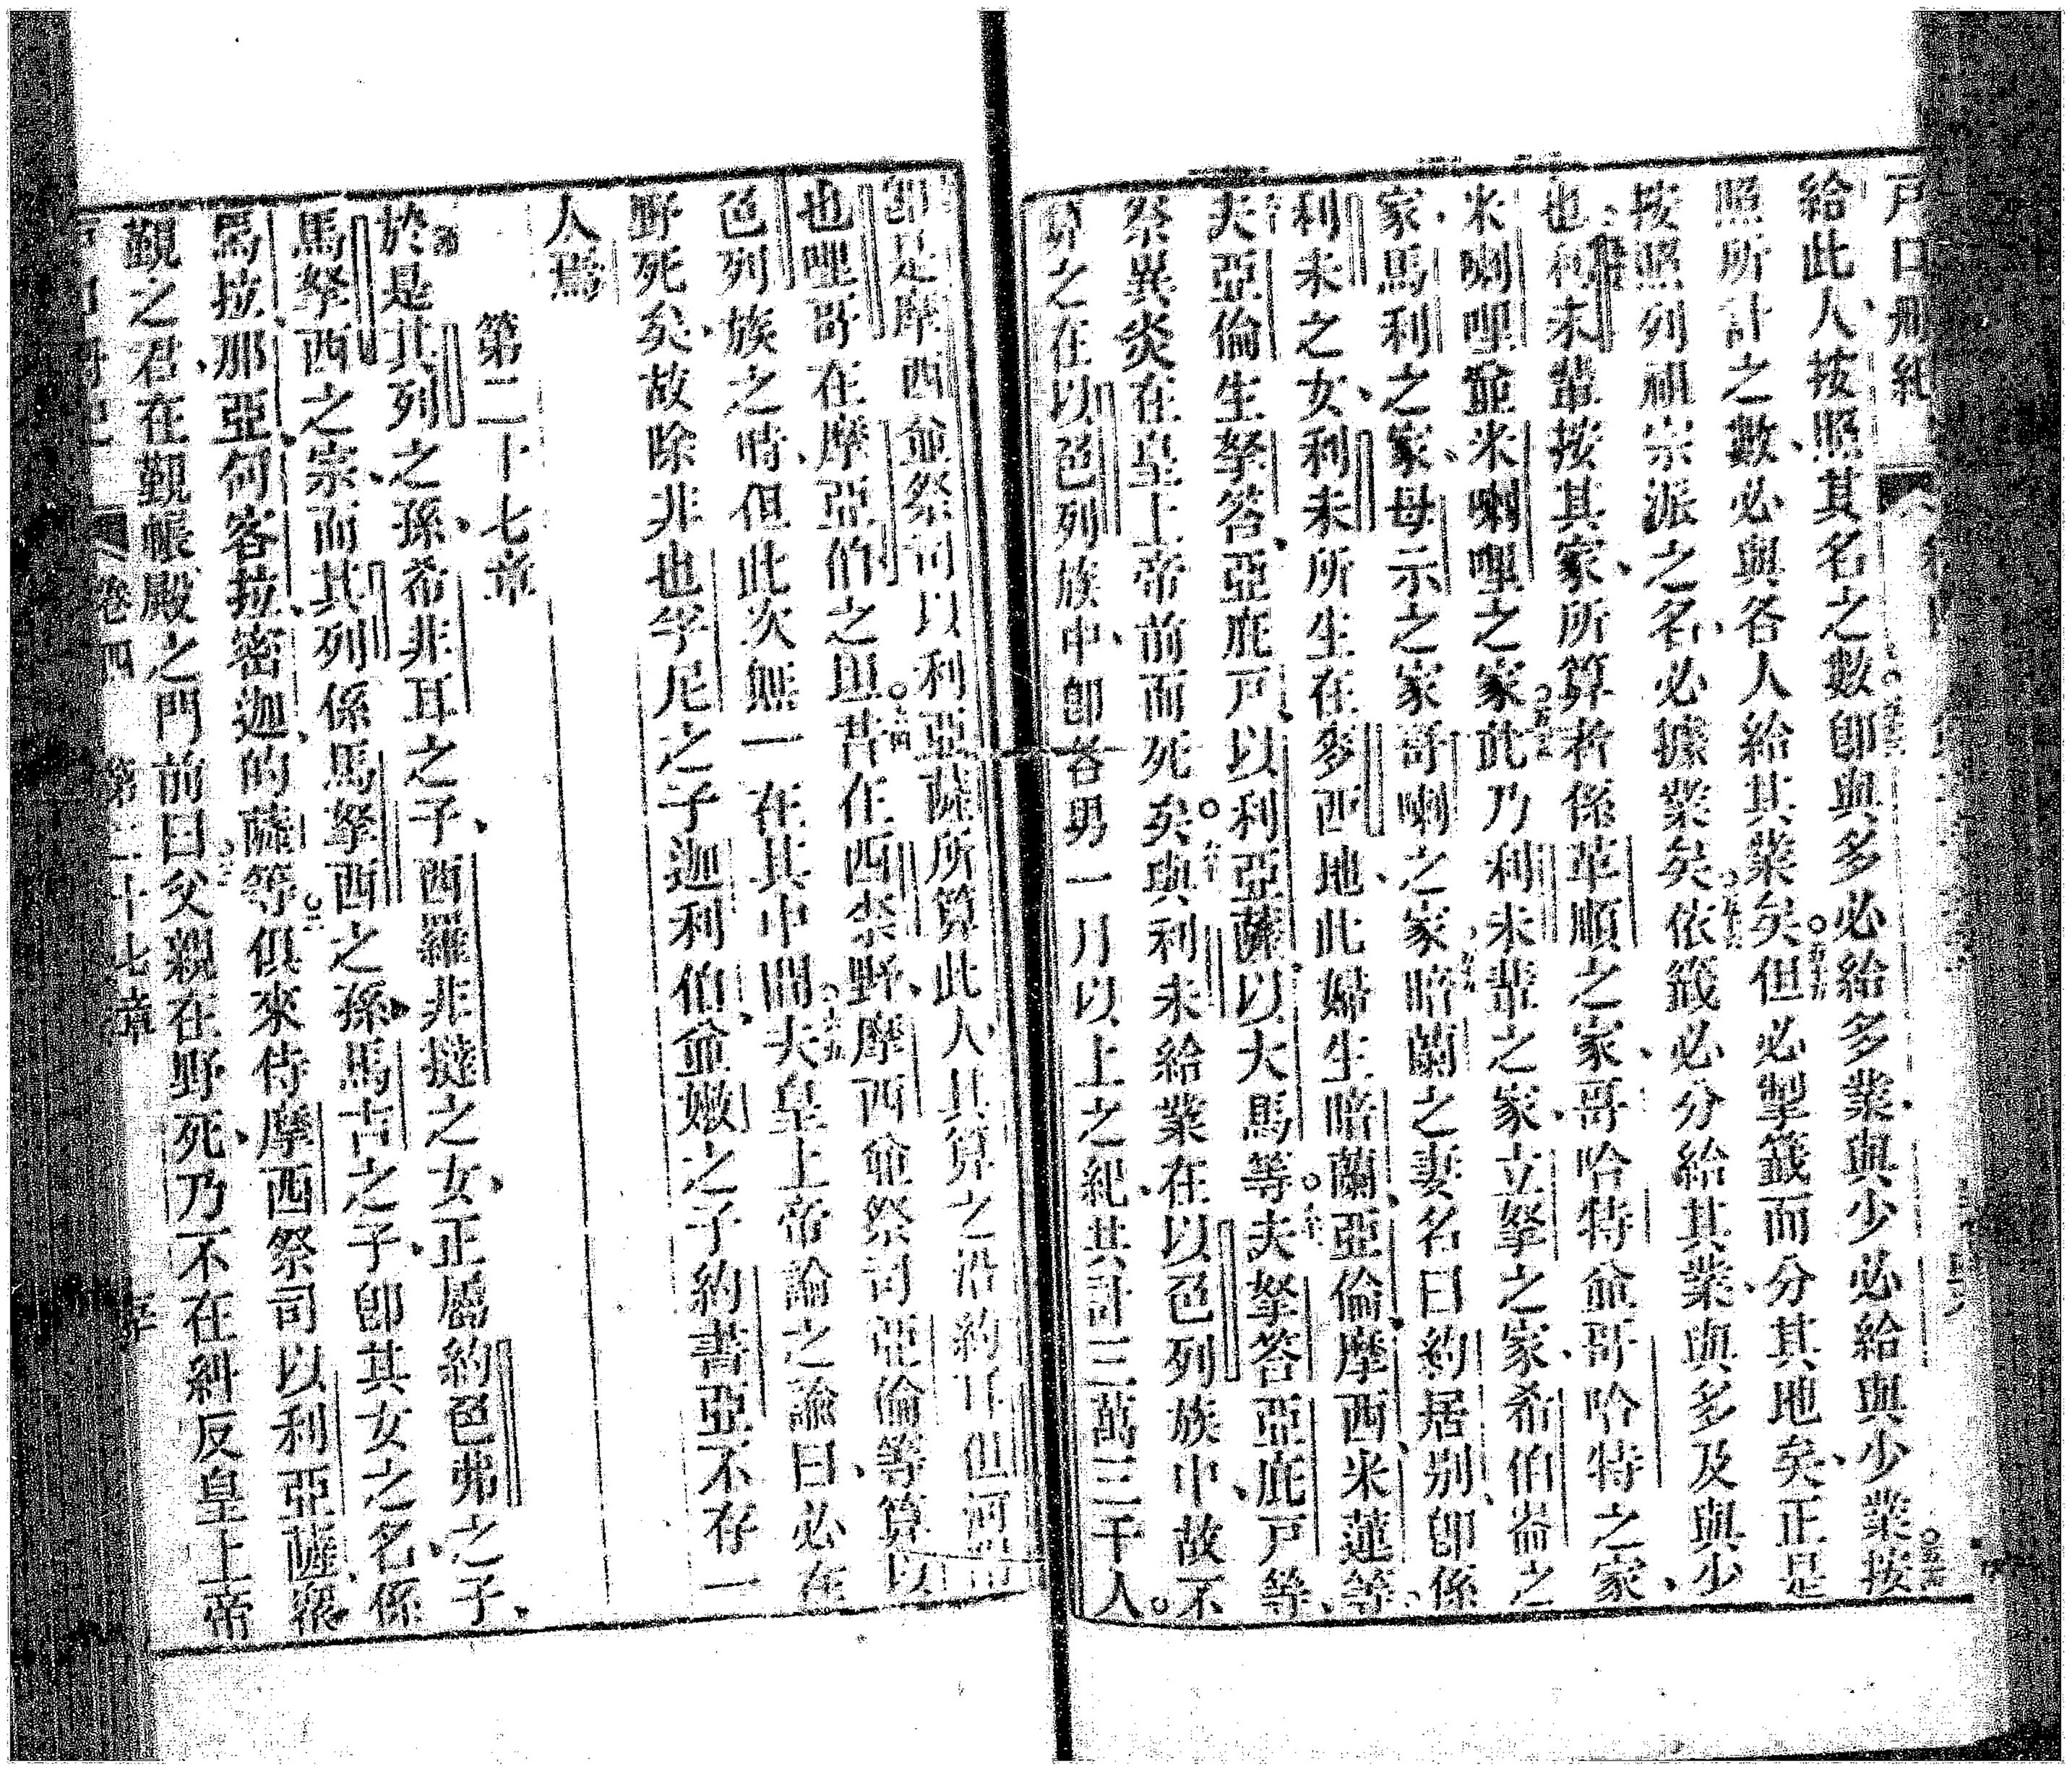 戶口冊紀
給此人、按照其名之數、卽與多必給多業、與少必給與少業、按
照所計之數、必與各人給其業矣。但必掣籤而分其地矣、正是
按照列祖宗派之名、必據業矣、依籤必分給其業、與多及與少
也、利未輩按其家、所算者係革順之家、哥哈特並哥哈特之家、
米喇哩並米喇哩之家、此乃利未輩之家、立拏之家、希伯崙之
家、馬利之家、母示之家、哥喇之家、暗蘭之妻名曰約居別、卽係
利未之女、利未所生在麥西地、此婦生暗蘭、亞倫、摩西、米蓮等、
夫亞倫生拏答、亞庇戶、以利亞薩、以大馬等。夫拏答亞庇戶等、
祭異炎在皇上帝前而死矣。與利未給業在以色列族中、故不
算之在以色列族中、卽各男一月以上之紀、共計三萬三千人。
卽是摩西並祭司以利亞薩所算此人、其算之沿約耳但河
也哩哥在摩亞伯之坦、昔在西柰野、摩西並祭司亞倫等算以
色列族之時、但此次無一在其中間、夫皇上帝論之諭曰、必在
野死矣、故除非也孚尼之子迦利伯、並嫩之子約書亞不存一
人焉
第二十七章
於是其列之孫、希非耳之子、西羅非撻之女、正屬約色弗之子、
馬拏西之宗、而其列係馬拏西之孫、馬吉之子、卽其女之名係
馬拉、那亞、何客拉、密迦、的薩等、俱來侍摩西祭司以利亞薩、衆
觀之君、在觀帳殿之門前曰、父親在野死、乃不在糾反皇上帝
卷四 第二十七章